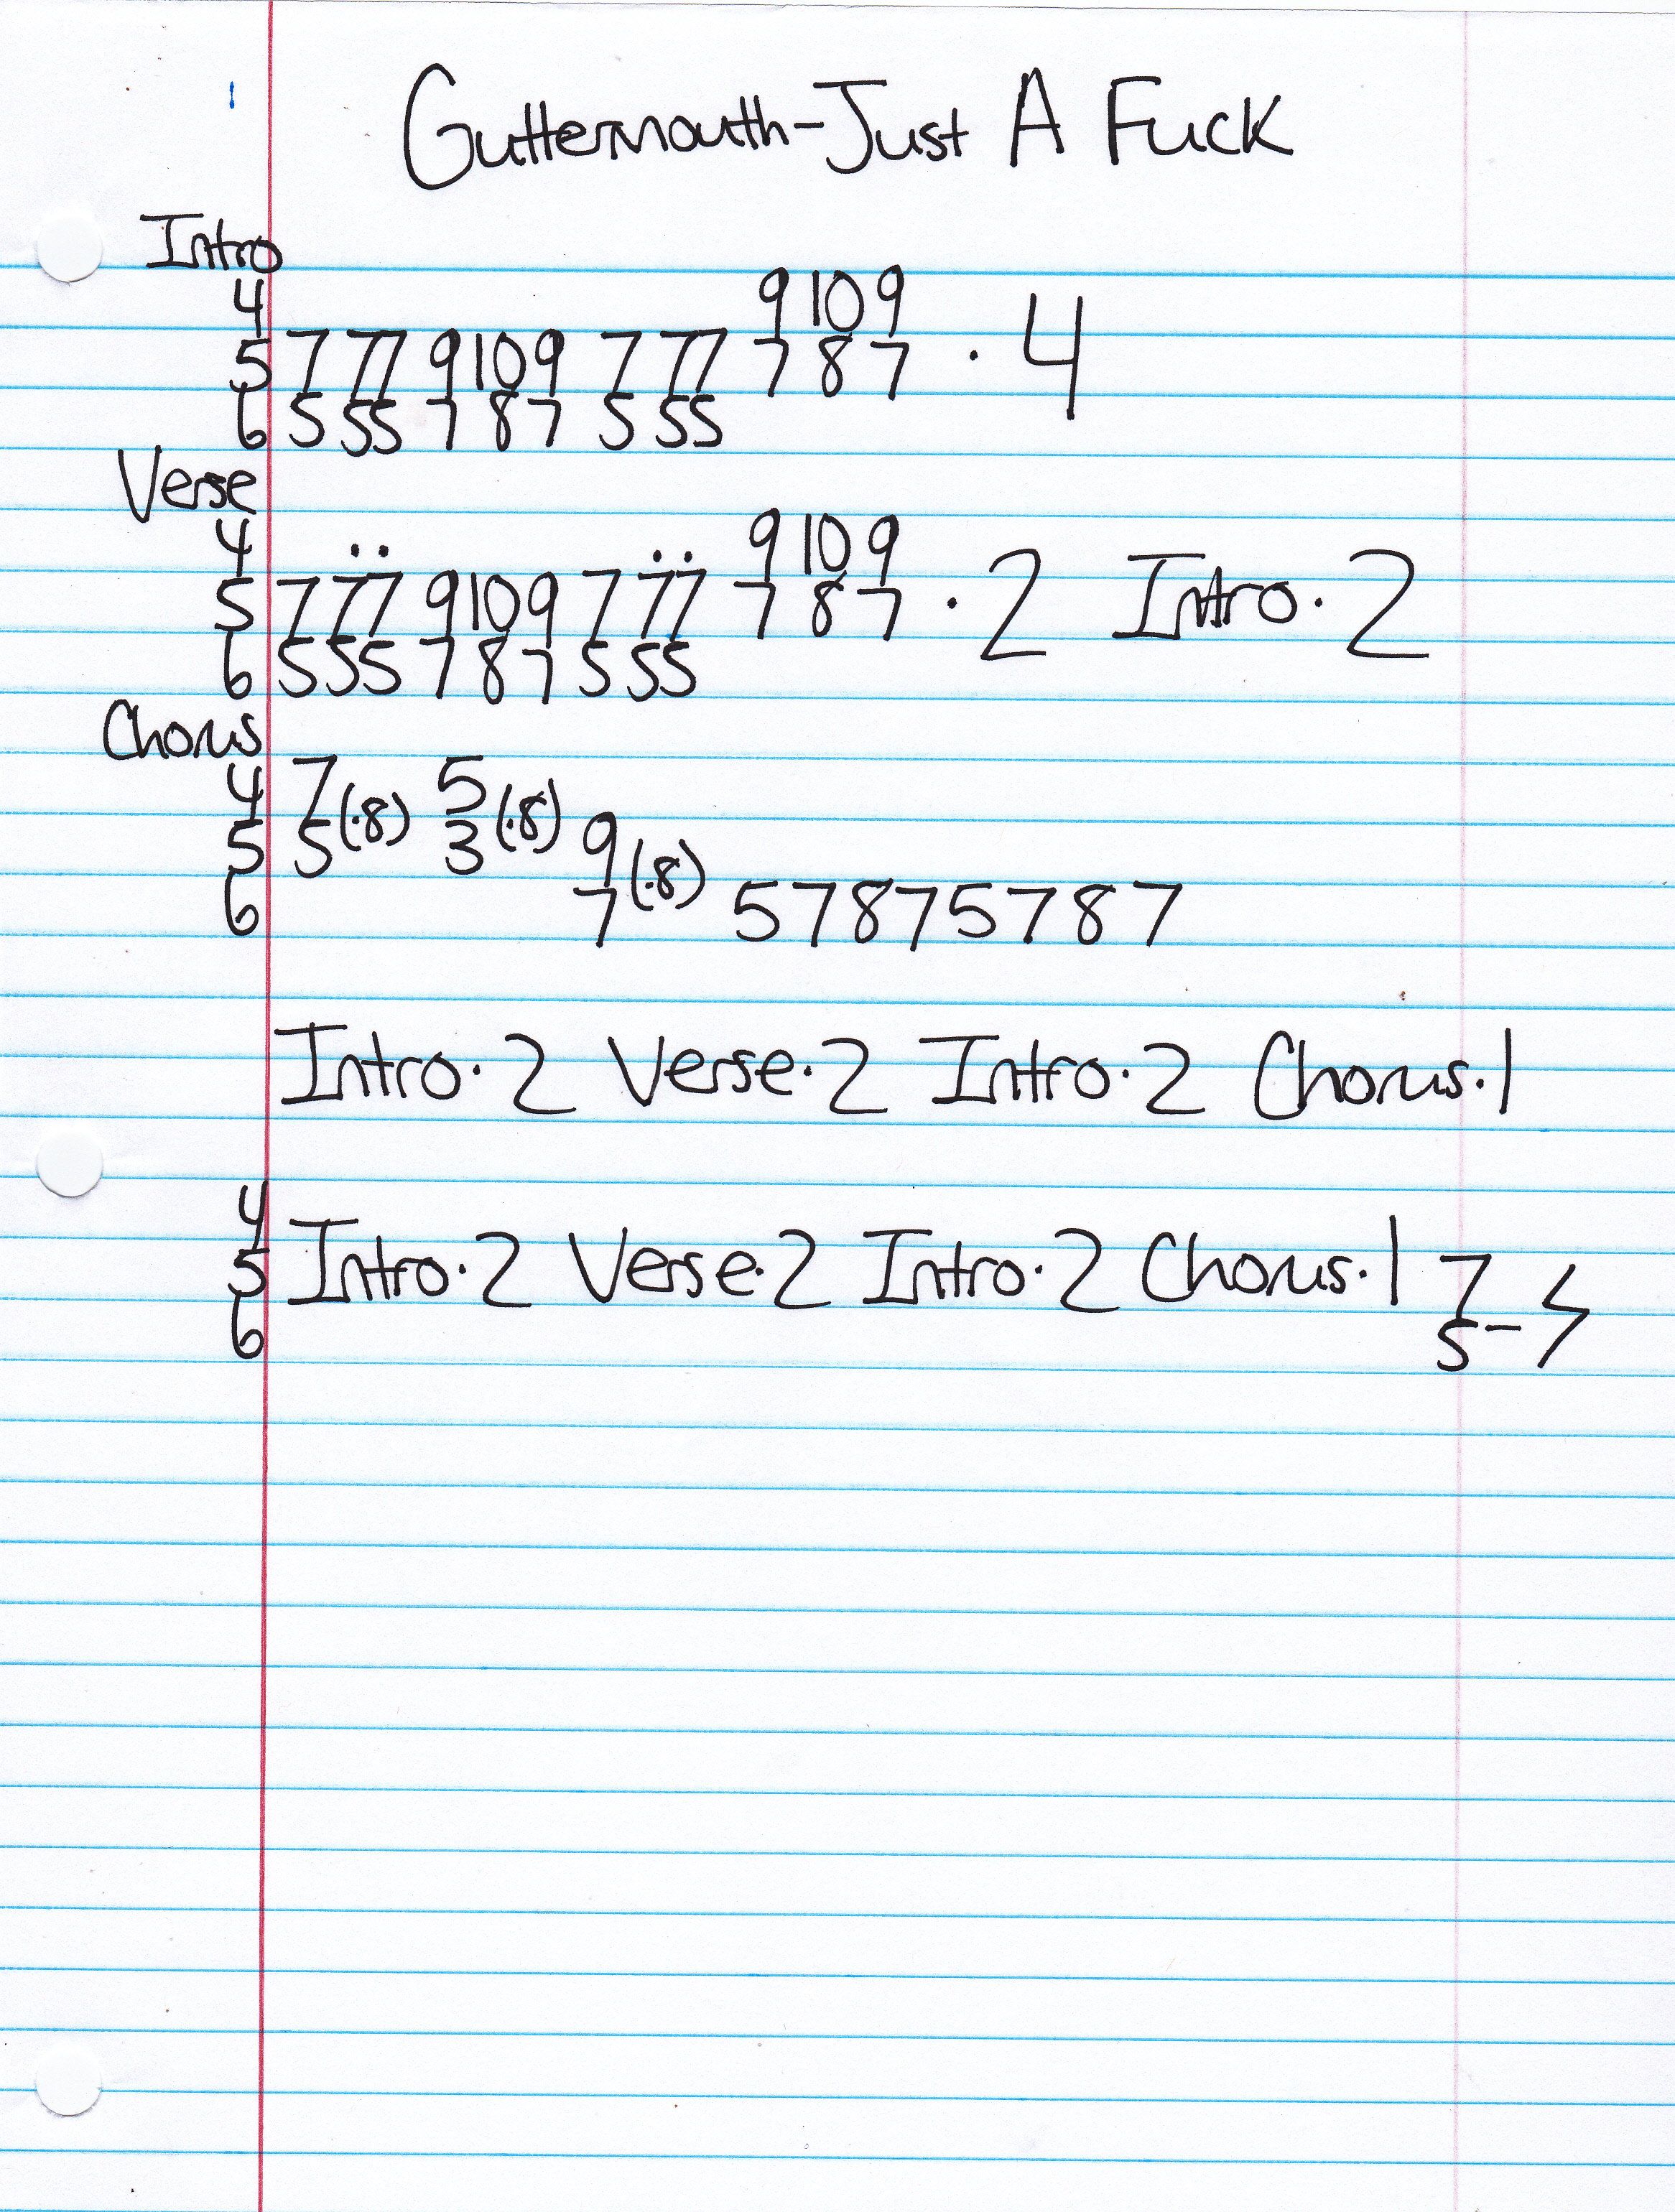 Guttermouth-Just A Fuck
Intro
4 9 10 9
5 7 77 9 10 9 7 77 7 8 7 · 4
6 5 55 7 8 7 5 55
Verse
4 ·· ·· 9 10 9
5 7 77 9 10 9 7 77 7 8 7 · 2 Intro · 2
6 5 55 7 8 7 5 55
Chorus
4 7 (·8) 5 (·8)
5 5 3 9 (·8)
6 7 5 7 8 7 5 7 8 7
Intro · 2 Verse · 2 Intro · 2 Chorus · 1
4
5 Intro · 2 Verse · 2 Intro · 2 Chorus · 1 7
6 5 –